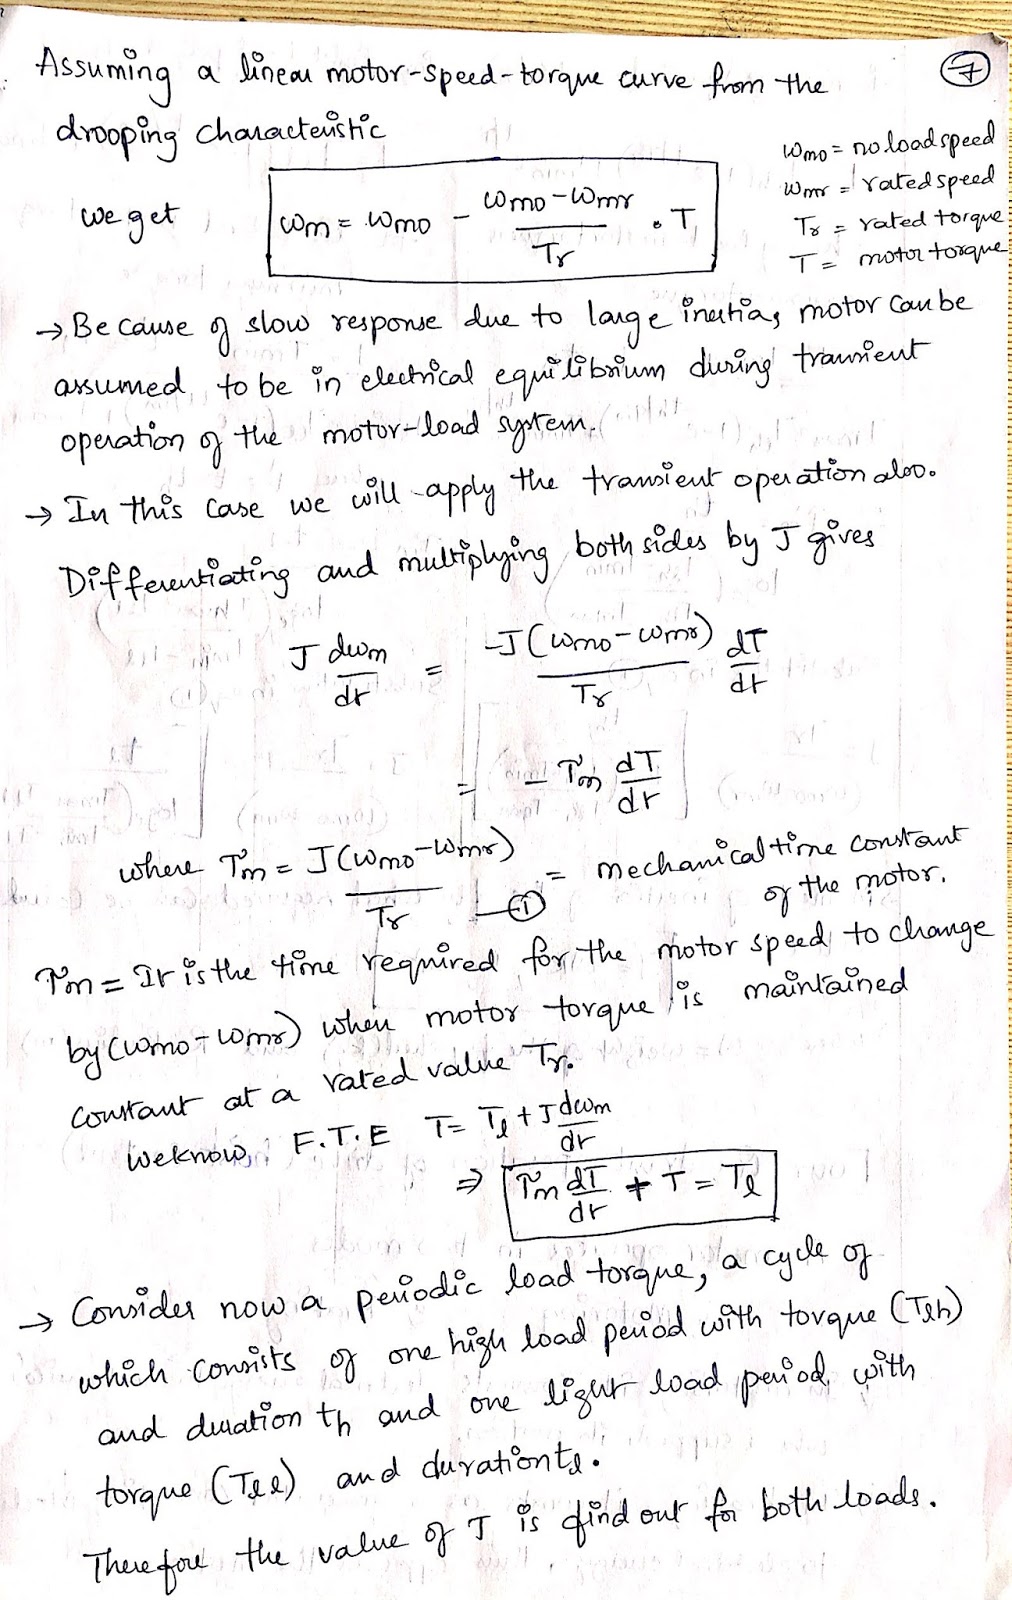 Assuming a linear motor-speed-torque curve from the
7
drooping characteristic
ωmo = no load speed
ωmr = rated speed
Tr = rated torque
T = motor torque
we get ωm = ωmo - (ωmo - ωmr)/Tr . T
→ Because of slow response due to large inertia, motor can be
assumed to be in electrical equilibrium during transient
operation of the motor-load system.
→ In this case we will apply the transient operation also.
Differentiating and multiplying both sides by J gives
J dωm/dt = -J(ωmo - ωmr)/Tr dT/dt
= - τm dT/dt
where τm = J(ωmo - ωmr)/Tr —① = mechanical time constant
of the motor.
τm = It is the time required for the motor speed to change
by (ωmo - ωmr) when motor torque is maintained
constant at a rated value Tr.
we know F.T.E T = Tl + J dωm/dt
⇒ τm dT/dt + T = Tl
→ Consider now a periodic load torque, a cycle of
which consists of one high load period with torque (Tlh)
and duration th and one light load period with
torque (Tll) and duration tl.
Therefore the value of J is find out for both loads.